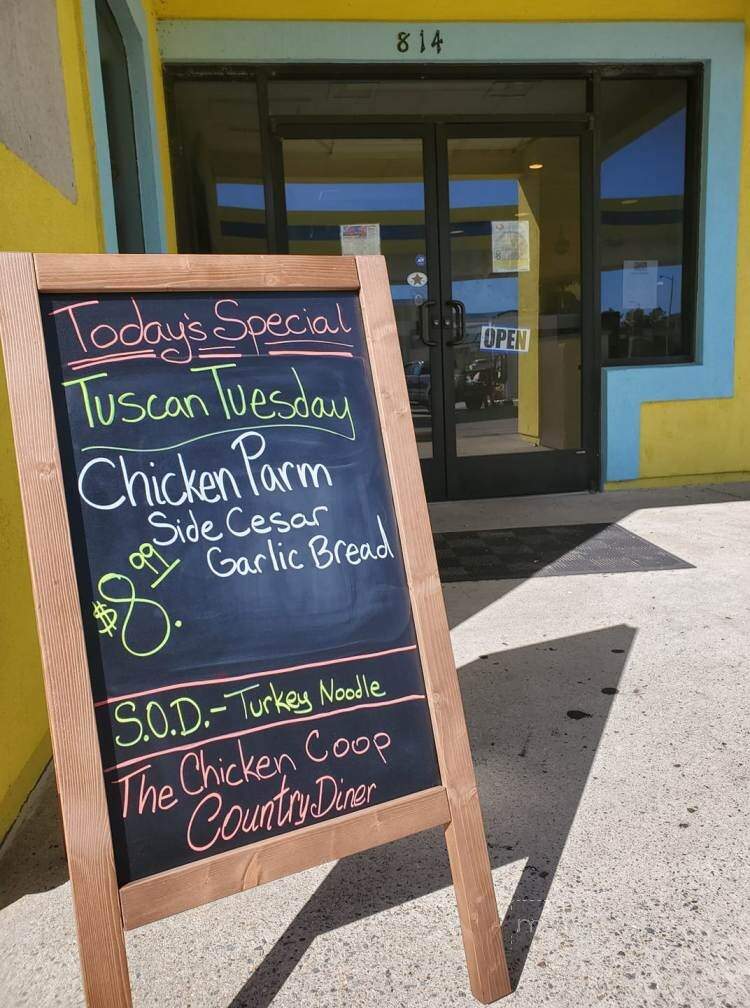 814
OPEN
Today's Special
Tuscan Tuesday
Chicken Parm
Side Cesar
Garlic Bread
$8.99
S.O.D. - Turkey Noodle
The Chicken Coop
Country Diner